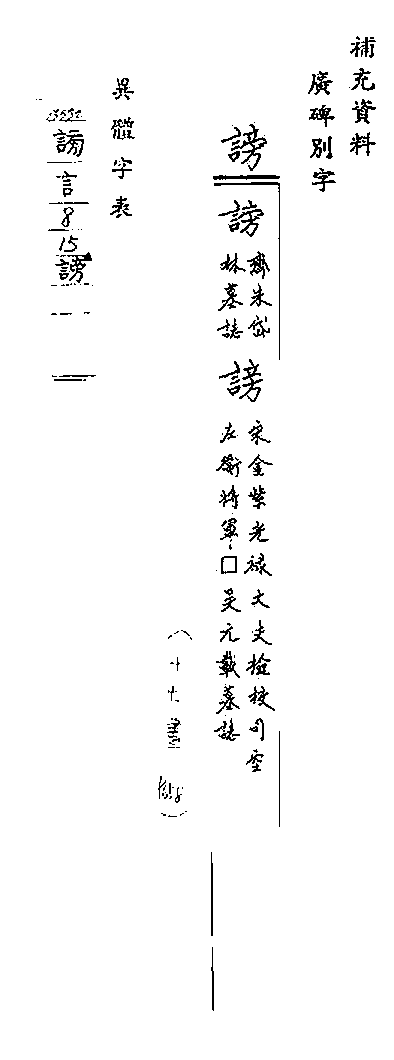 補充資料
廣碑別字
謗
謗
齊朱岱
林墓誌
謗
宋金紫光祿大夫檢校司空
左衛將軍□吳元載墓誌
異體字表
謗
言
8
15
謗